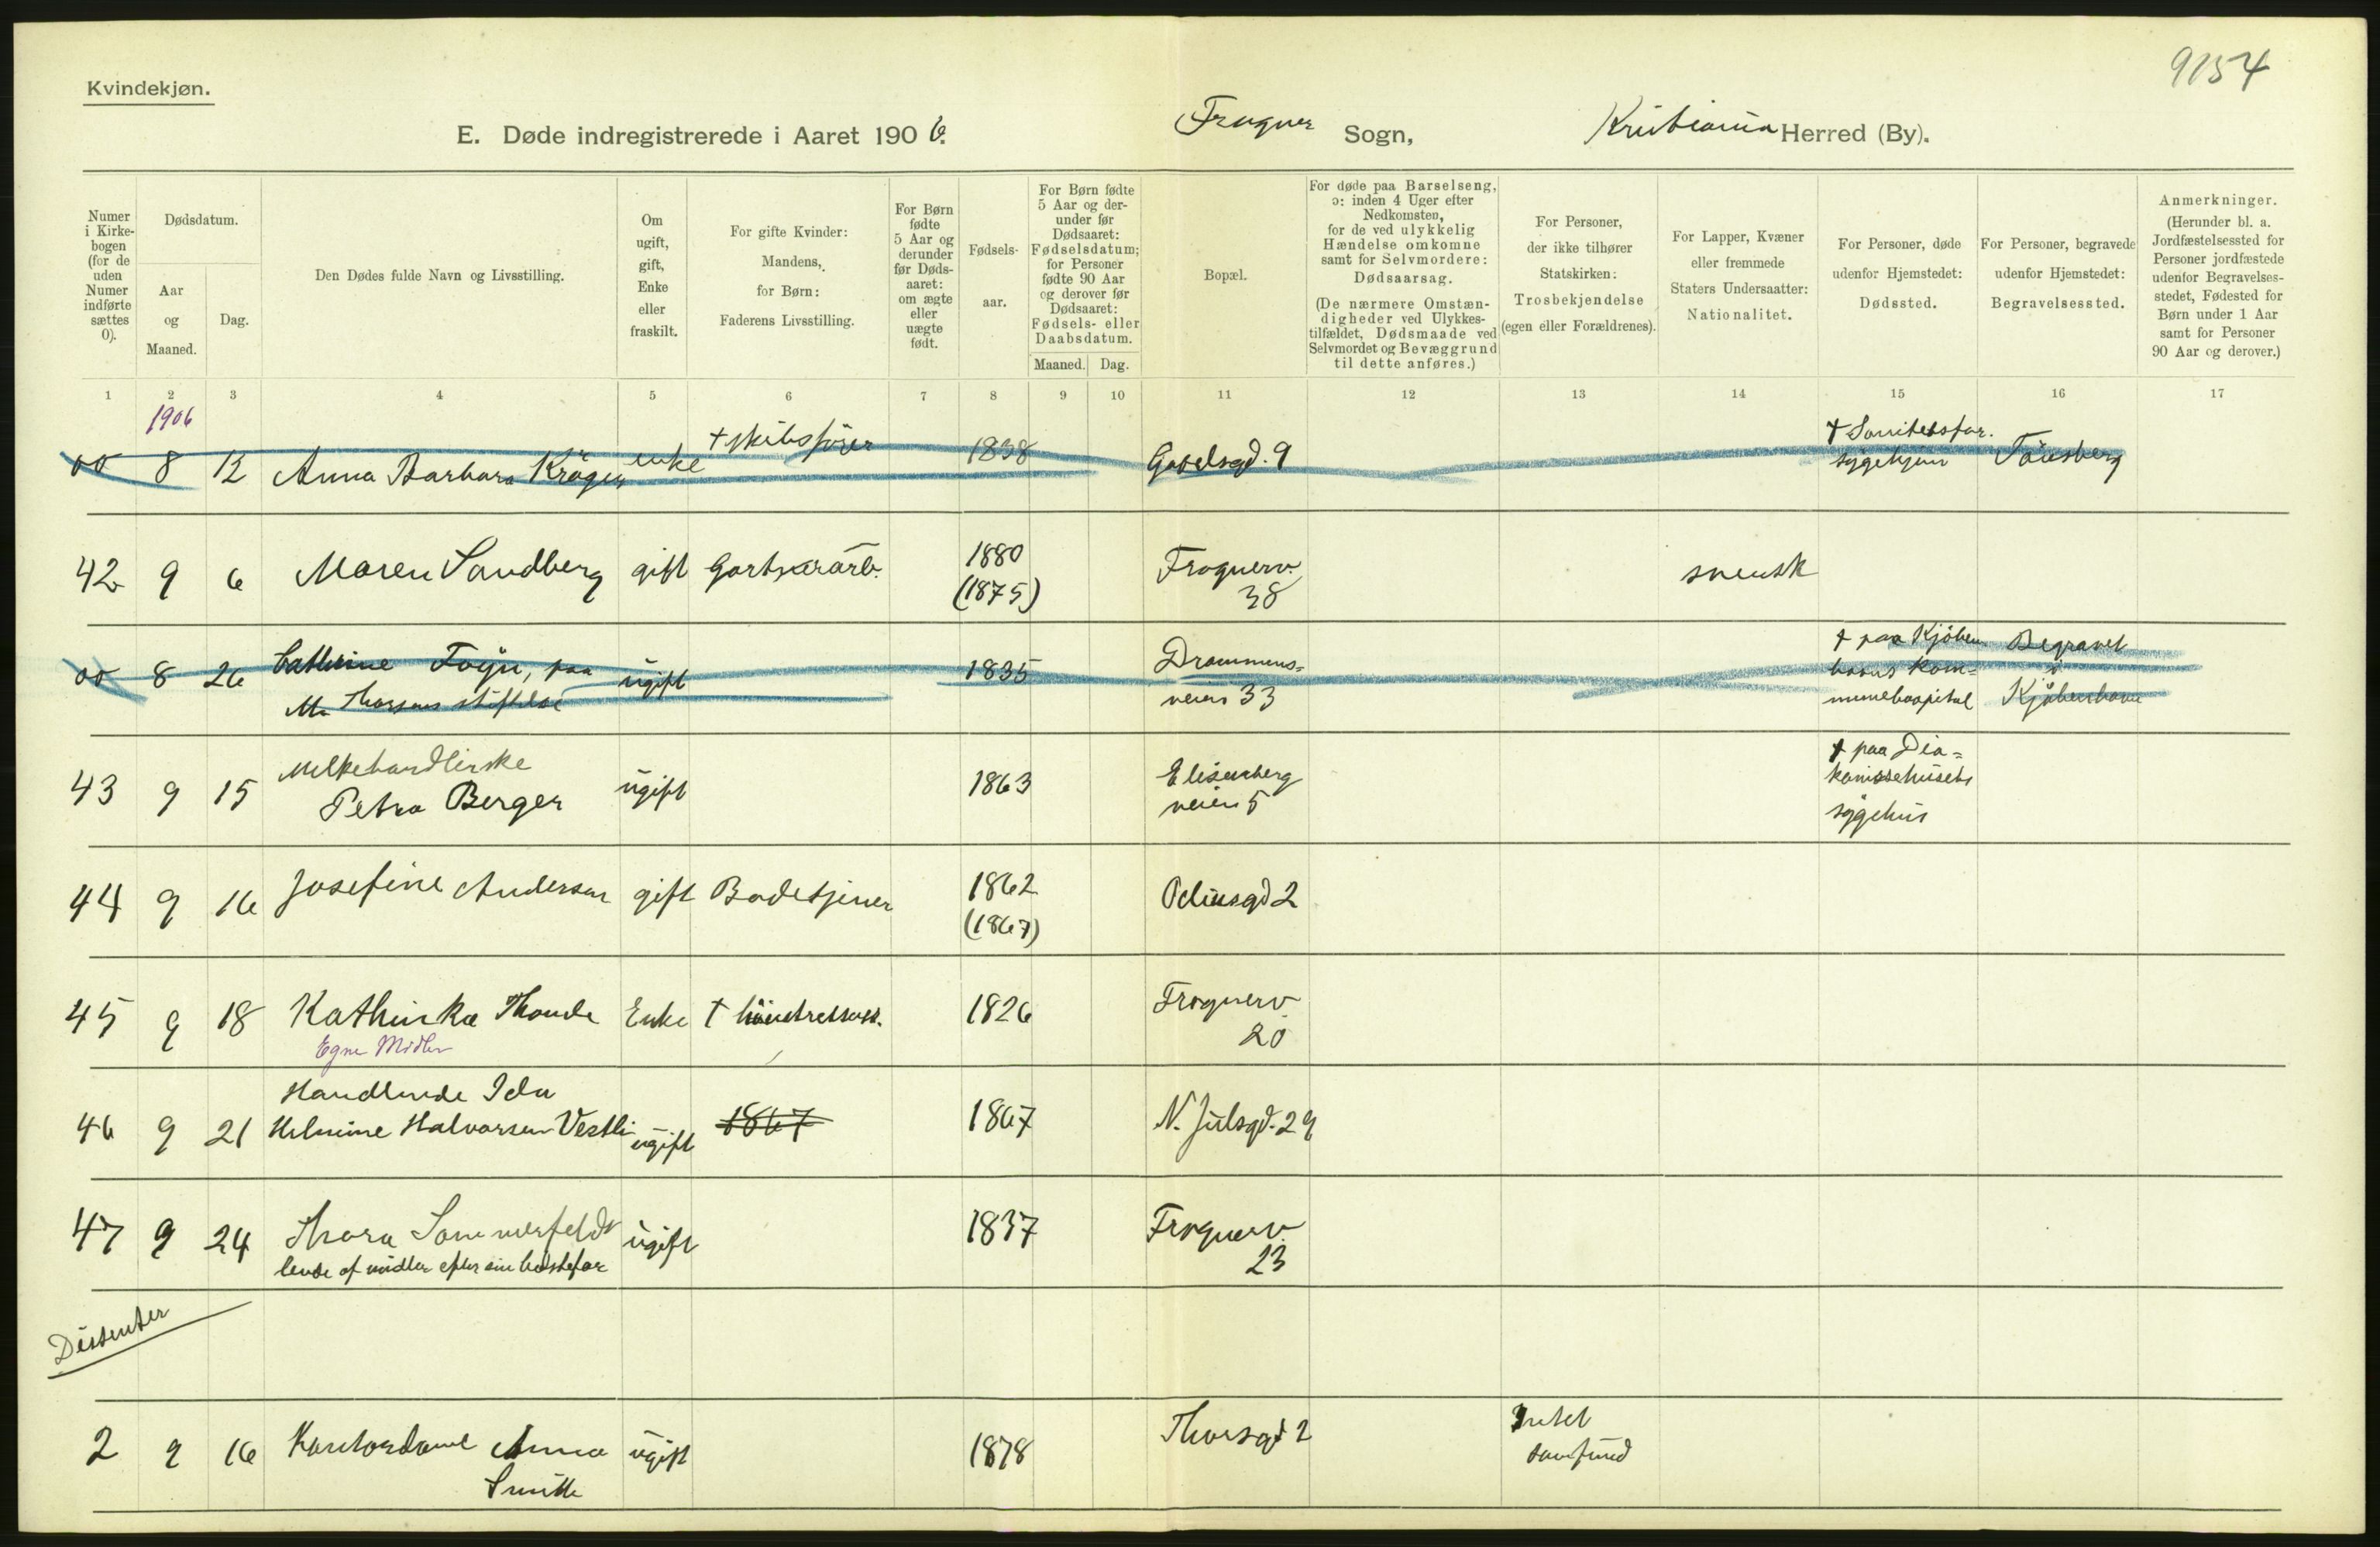 9154
Kvindekjøn.
E. Døde indregistrerede i Aaret 1906. Frogner Sogn, Kristiania Herred (By).
Numer i Kirkebogen (for de uden Numer indførte sættes 0).
Dødsdatum.
Aar og Maaned.
Dag.
Den Dødes fulde Navn og Livsstilling.
Om ugift, gift, Enke eller fraskilt.
For gifte Kvinder: Mandens, for Børn: Faderens Livsstilling.
For Børn fødte 5 Aar og derunder før Dødsaaret: om ægte eller uægte født.
Fødselsaar.
For Børn fødte 5 Aar og derunder før Dødsaaret: Fødselsdatum; for Personer fødte 90 Aar og derover før Dødsaaret: Fødsels- eller Daabsdatum.
Maaned. Dag.
Bopæl.
For døde paa Barselseng, ɔ: inden 4 Uger efter Nedkomsten, for de ved ulykkelig Hændelse omkomne samt for Selvmordere: Dødsaarsag.
(De nærmere Omstændigheder ved Ulykkestilfældet, Dødsmaade ved Selvmordet og Bevæggrund til dette anføres.)
For Personer, der ikke tilhører Statskirken: Trosbekjendelse (egen eller Forældrenes).
For Lapper, Kvæner eller fremmede Staters Undersaatter: Nationalitet.
For Personer, døde udenfor Hjemstedet: Dødssted.
For Personer, begravede udenfor Hjemstedet: Begravelsessted.
Anmerkninger.
(Herunder bl. a. Jordfæstelsessted for Personer jordfæstede udenfor Begravelsesstedet, Fødested for Børn under 1 Aar samt for Personer 90 Aar og derover.)
1 2 3 4 5 6 7 8 9 10 11 12 13 14 15 16 17
1906
00 8 12 Anna Barbara Kröger enke † skibsfører 1838 Gabelsgd. 9 † Sanitetsfor. sygehjem Tönsberg
42 9 6 Maren Sandberg gift Gartnerarb. 1880 (1875) Frognerv. 38 svensk
00 8 26 Cathrine Foyn, paa
M. Thorsens stiftelse ugift 1835 Drammensveien 33 † paa Kjöbenhavns Kommunehospital Begravet i Kjöbenhavn
43 9 15 Melkehandlerske
Petra Berger ugift 1863 Elisenberg veien 5 † paa Diakonissehusets sygehus
44 9 16 Josefine Andersen gift Badetjener 1862 (1867) Odinsgd 2
45 9 18 Kathinka Thaude Enke † 1826 Frognerv. 20
Egne Midler
46 9 21 Handlende Ida
Helmine Halvorsen Vestli ugift 1867 1867 N. Julsgd. 29
47 9 24 Thora Sommerfeldt ugift 1837 Frognerv. 23
levde af midler efter sin bedstefar
Dissenter
2 9 16 Kontordame Anna
Smith ugift 1878 Thorsgd 2 Intet samfund